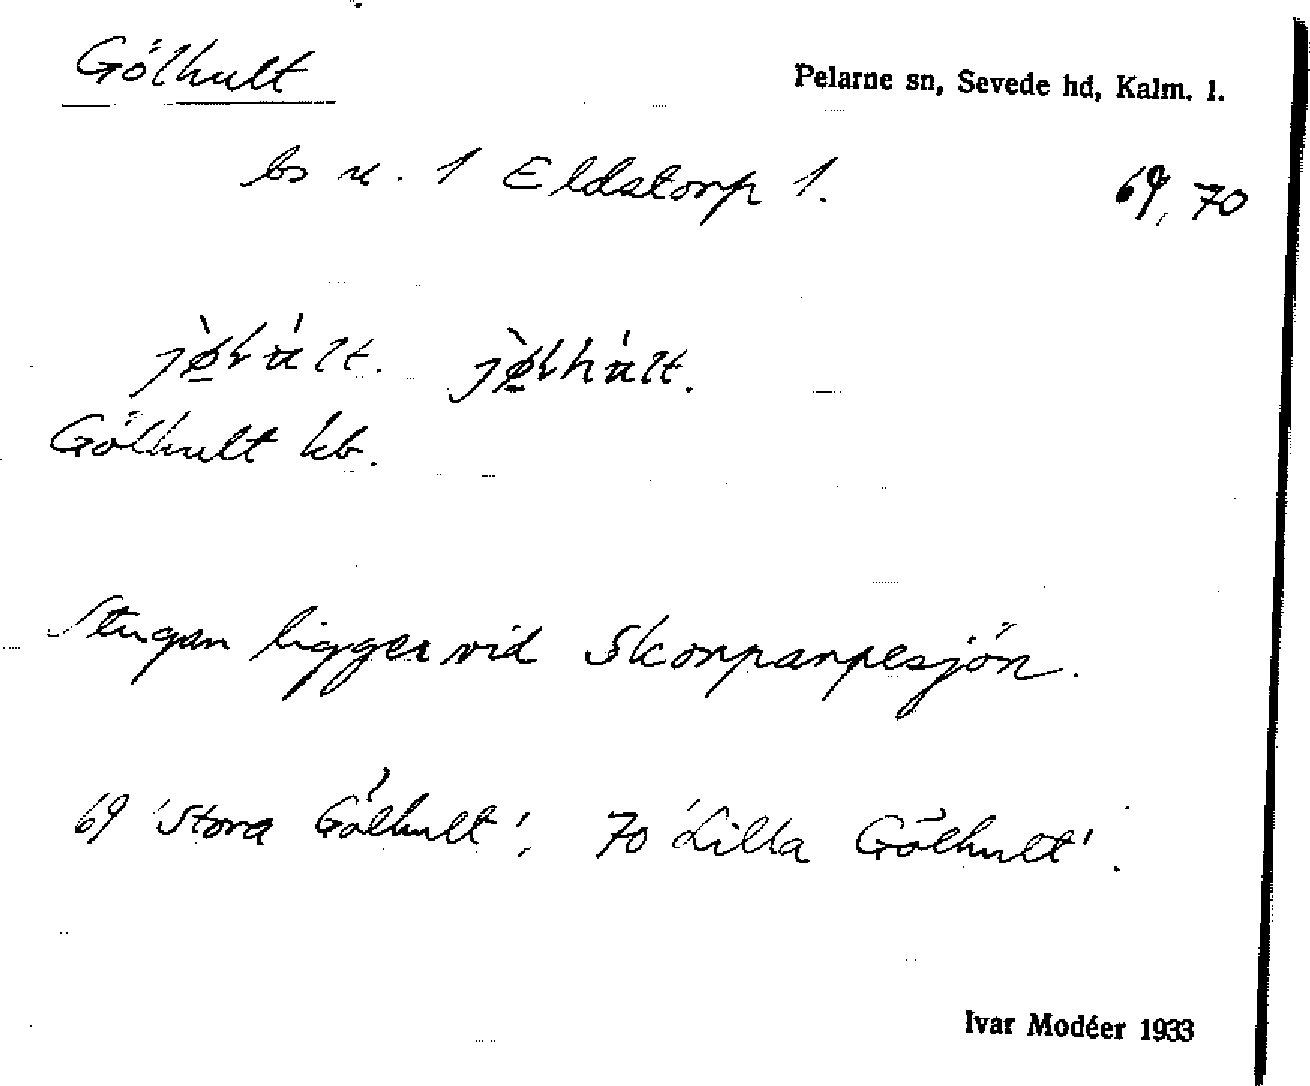 Gölhult
Pelarne sn, Sevede hd, Kalm. l.
bs u. 1 Eldstorp 1.
69, 70
Gölhult kb.
Stugan ligger vid Skorparpesjön.
69 'Stora Gölhult', 70 'Lilla Gölhult'.
Ivar Modéer 1933